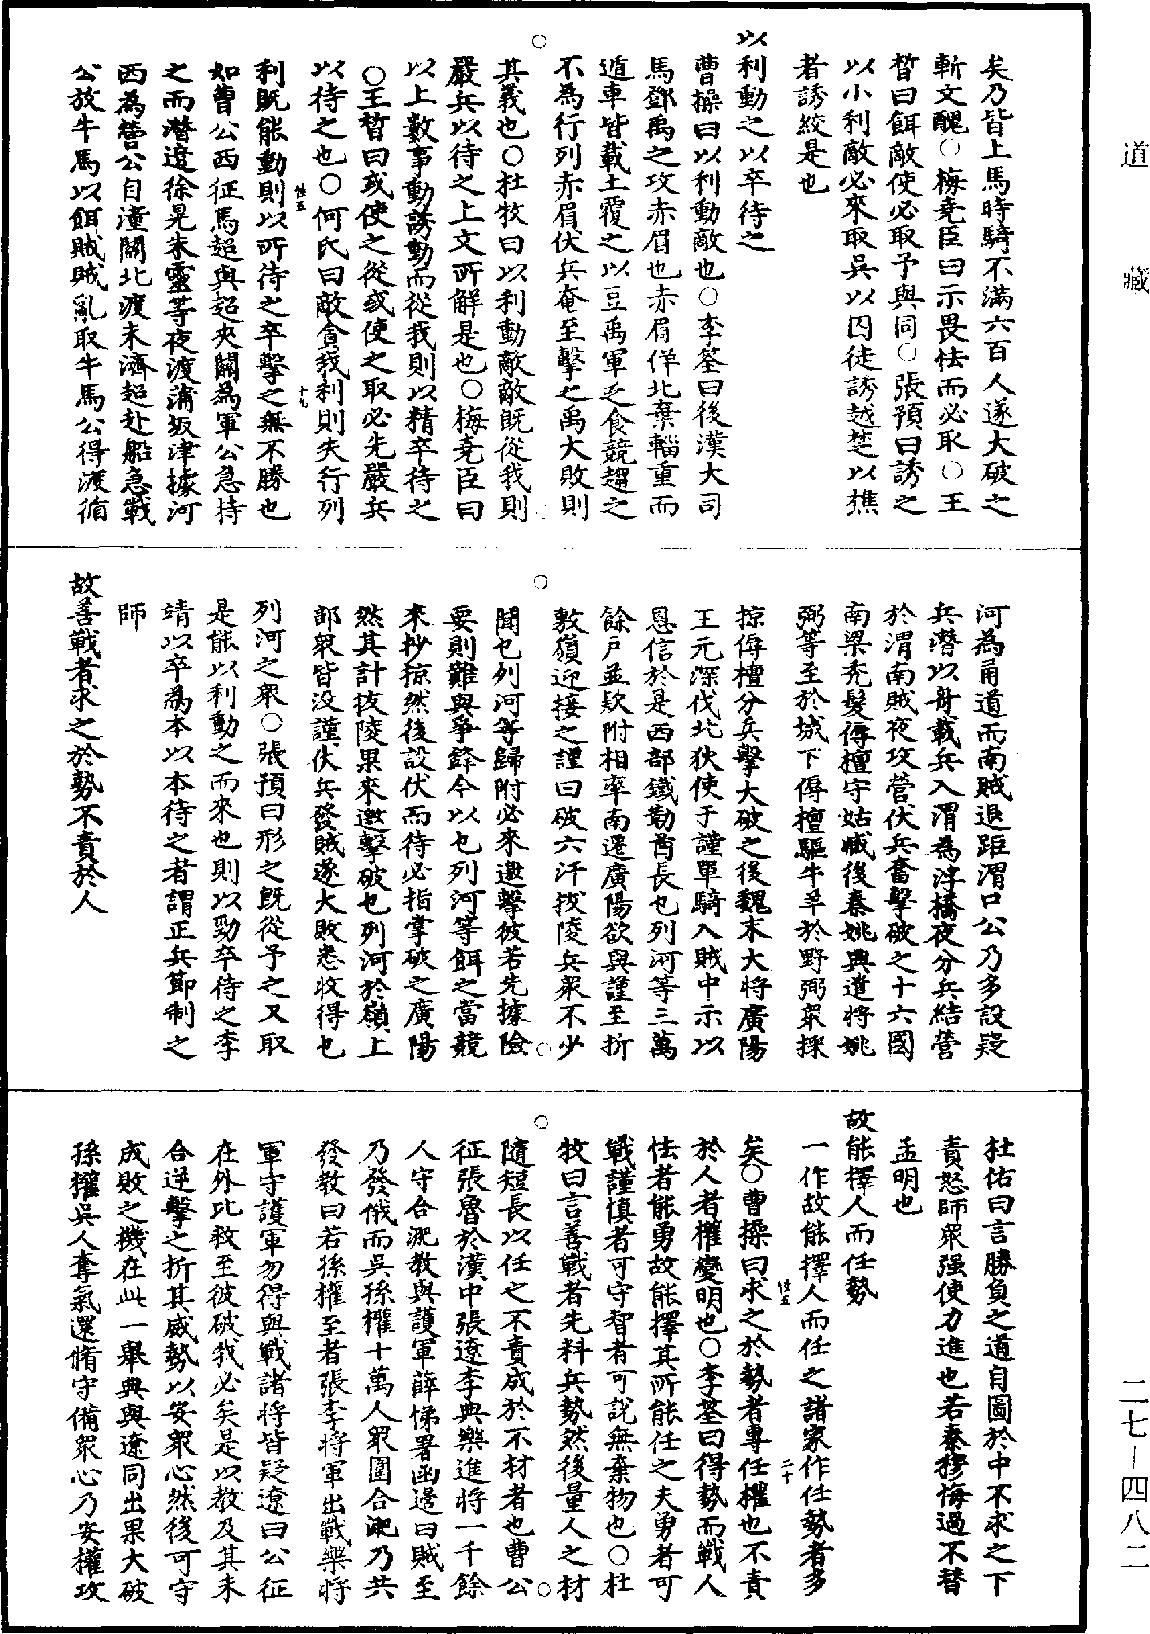 矣乃皆上馬時騎不滿六百人遂大破之
斬文醜○梅堯臣曰示畏怯而必取○王
晳曰餌敵使必取予與同○張預曰誘之
以小利敵必來取吳以囚徒誘越楚以樵
者誘絞是也
以利動之以卒待之
曹操曰以利動敵也○李筌曰後漢大司
馬鄧禹之攻赤眉也赤眉佯北棄輜重而
遁車皆載土覆之以豆禹軍乏食競趨之
不為行列赤眉伏兵奄至擊之禹大敗則
其義也○杜牧曰以利動敵敵既從我則
嚴兵以待之上文所解是也○梅堯臣曰
以上數事動誘動而從我則以精卒待之
○王晳曰或使之從或使之取必先嚴兵
以待之也○何氏曰敵貪我利則失行列
利既能動則以所待之卒擊之無不勝也
如曹公西征馬超與超夾關為軍公急持
之而潛遣徐晃朱靈等夜渡蒲坂津據河
西為營公自潼關北渡未濟超赴船急戰
公放牛馬以餌賊賊亂取牛馬公得渡循
河為甬道而南賊退距渭口公乃多設疑
兵潛以舟載兵入渭為浮橋夜分兵結營
於渭南賊夜攻營伏兵奮擊破之十六國
南梁禿髮傉檀守姑臧後秦姚興遣將姚
弼等至於城下傉檀驅牛羊於野弼眾採
掠傉檀分兵擊大破之後魏末大將廣陽
王元深伐北狄使于謹單騎入賊中示以
恩信於是西部鐵勒酋長乜列河等三萬
餘戶並款附相率南遷廣陽欲與謹至折
敷嶺迎接之謹曰破六汗拔陵兵眾不少
聞乜列河等歸附必來邀擊彼若先據險
要則難與爭鋒今以乜列河等餌之當競
來抄掠然後設伏而待必指掌破之廣陽
然其計拔陵果來邀擊破乜列河於嶺上
部眾皆没謹伏兵發賊遂大敗悉收得乜
列河之眾○張預曰形之既從予之又取
是能以利動之而來也則以勁卒待之李
靖以卒為本以本待之者謂正兵節制之
師
故善戰者求之於勢不責於人
杜佑曰言勝負之道自圖於中不求之下
責怒師眾强使力進也若秦穆悔過不替
孟明也
故能擇人而任勢
一作故能擇人而任之諸家作任勢者多
矣○曹操曰求之於勢者專任權也不責
於人者權變明也○李筌曰得勢而戰人
怯者能勇故能擇其所能任之夫勇者可
戰謹慎者可守智者可說無棄物也○杜
牧曰言善戰者先料兵勢然後量人之材
隨短長以任之不責成於不材者也曹公
征張魯於漢中張遼李典樂進將一千餘
人守合淝教與護軍薛悌署函邊曰賊至
乃發俄而吳孫權十萬人眾圍合淝乃共
發教曰若孫權至者張李將軍出戰樂將
軍守護軍勿得與戰諸將皆疑遼曰公征
在外比救至彼破我必矣是以教及其未
合逆擊之折其威勢以安眾心然後可守
成敗之機在此一舉典與遼同出果大破
孫權吳人奪氣還脩守備眾心乃安權攻
道藏
二七—四八二